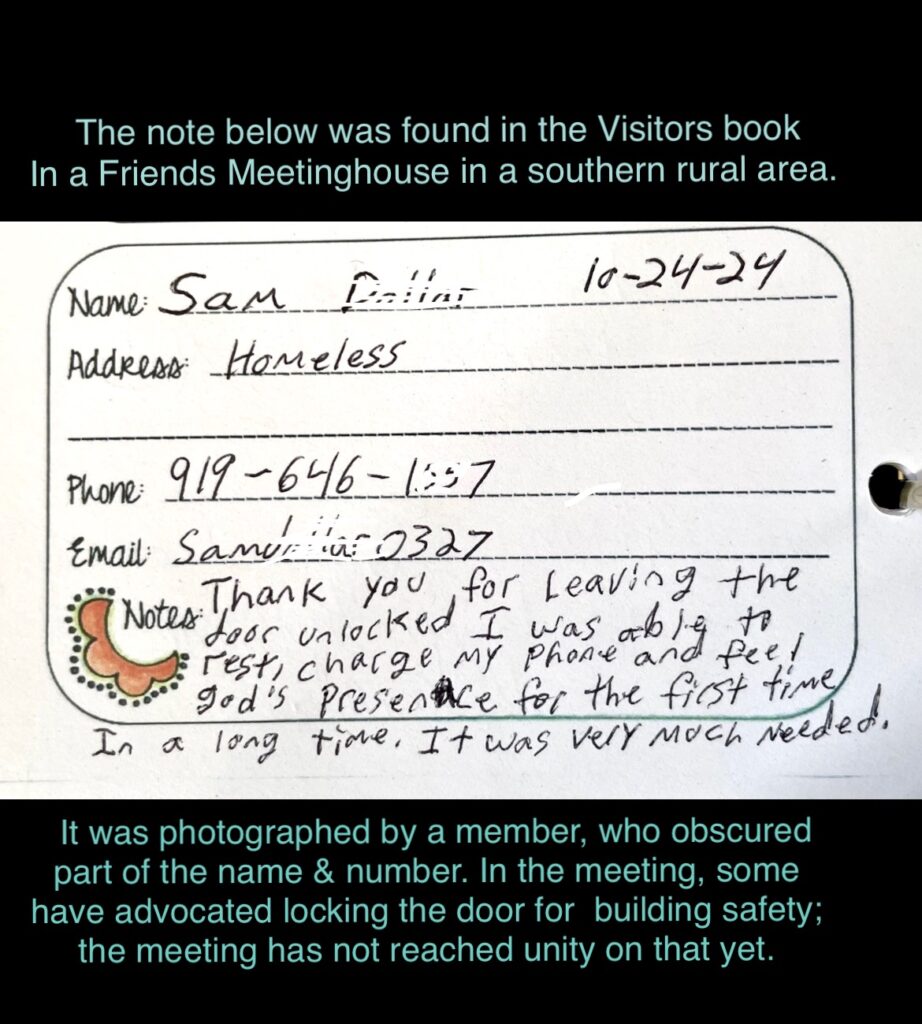 The note below was found in the Visitors book
In a Friends Meetinghouse in a southern rural area.
10-24-24
Name: Sam
Address: Homeless
Phone: 919-646-
Email:
Notes: Thank you for Leaving the
door unlocked I was able to
rest, charge my phone and feel
god's presence for the first time
In a long time. It was very much needed.
It was photographed by a member, who obscured
part of the name & number. In the meeting, some
have advocated locking the door for building safety;
the meeting has not reached unity on that yet.